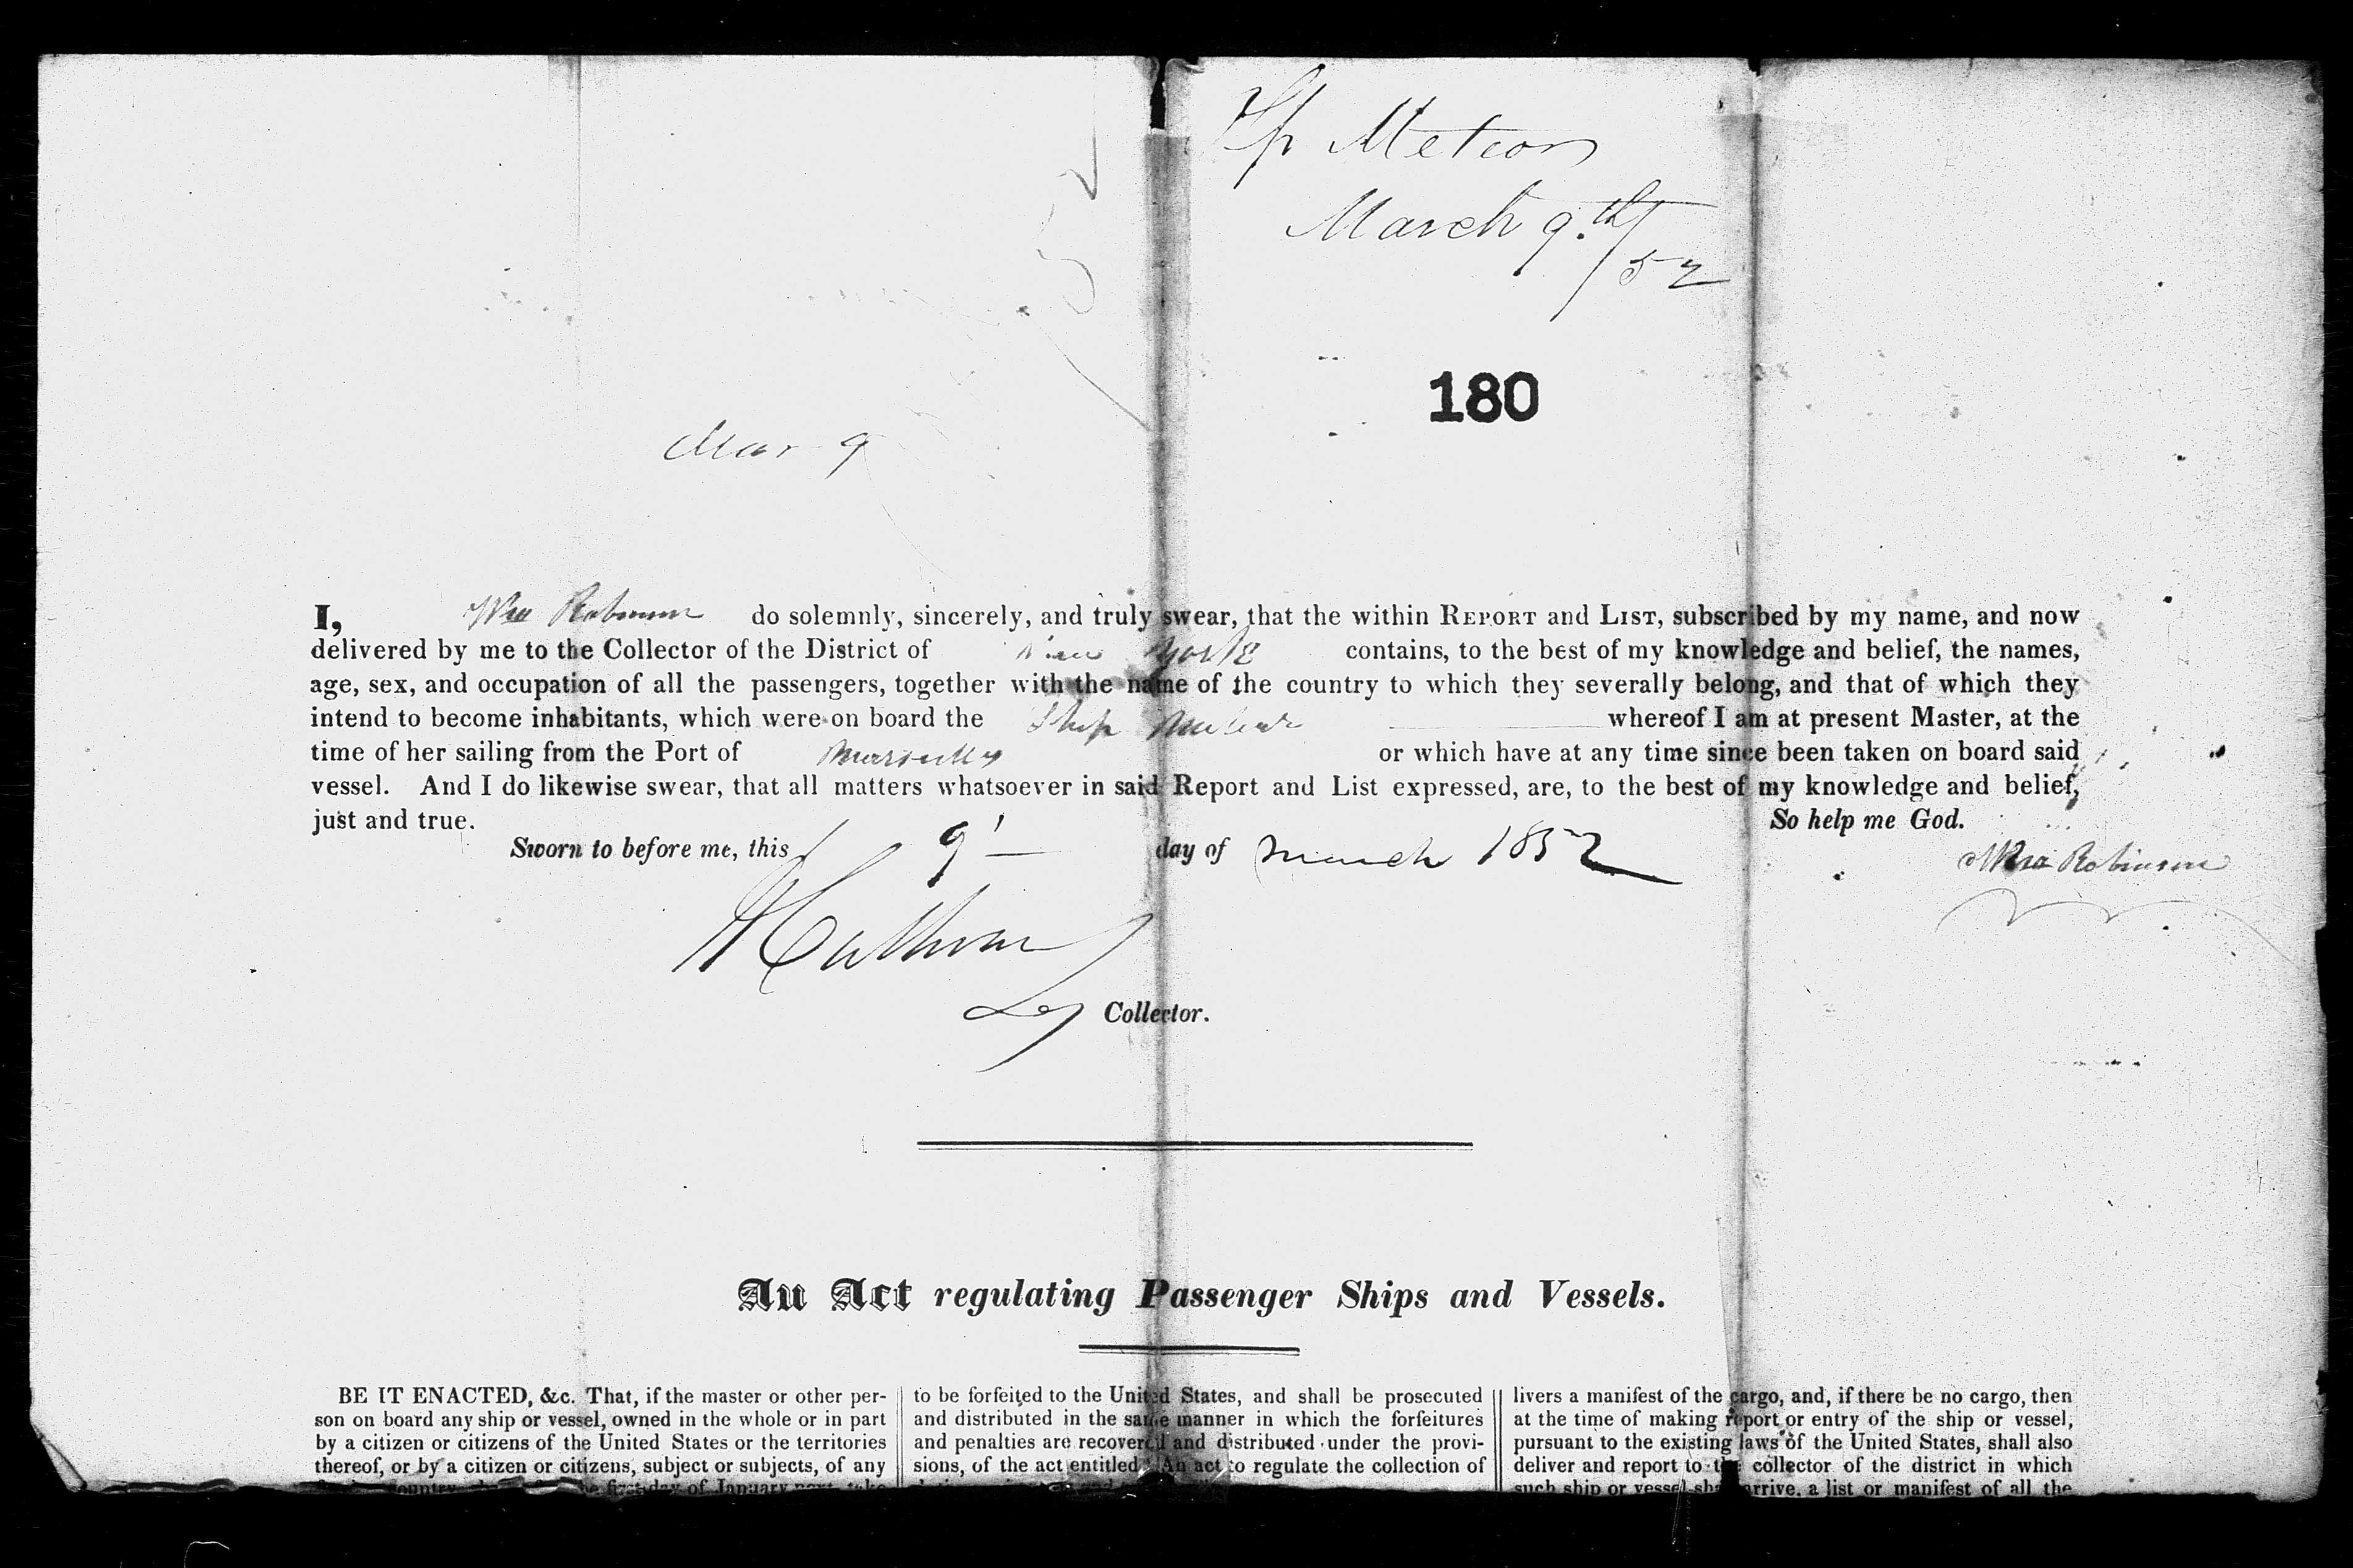 Sp Meteor
March 9.th/52
180
Mar 9
I, Wm Robinson do solemnly, sincerely, and truly swear, that the within REPORT and LIST, subscribed by my name, and now
delivered by me to the Collector of the District of New York contains, to the best of my knowledge and belief, the names,
age, sex, and occupation of all the passengers, together with the name of the country to which they severally belong, and that of which they
intend to become inhabitants, which were on board the Ship Meteor whereof I am at present Master, at the
time of her sailing from the Port of Marseilles or which have at any time since been taken on board said
vessel. And I do likewise swear, that all matters whatsoever in said Report and List expressed, are, to the best of my knowledge and belief,
just and true. So help me God.
Sworn to before me, this 9 day of March 1852
Wm Robinson
Collector.
An Act regulating Passenger Ships and Vessels.
BE IT ENACTED, &c. That, if the master or other per-
son on board any ship or vessel, owned in the whole or in part
by a citizen or citizens of the United States or the territories
thereof, or by a citizen or citizens, subject or subjects, of any
country, the first day of January next, take
to be forfeited to the United States, and shall be prosecuted
and distributed in the same manner in which the forfeitures
and penalties are recovered and distributed under the provi-
sions, of the act entitled "An act to regulate the collection of
livers a manifest of the cargo, and, if there be no cargo, then
at the time of making report or entry of the ship or vessel,
pursuant to the existing laws of the United States, shall also
deliver and report to the collector of the district in which
such ship or vessel shall arrive, a list or manifest of all the